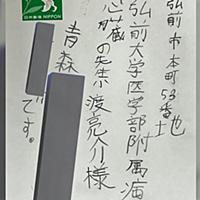 弘前市本町53番地
弘前大学医学部附属病
心臓の先生 渡亮介様
青森
です。
日本郵便 NIPPON